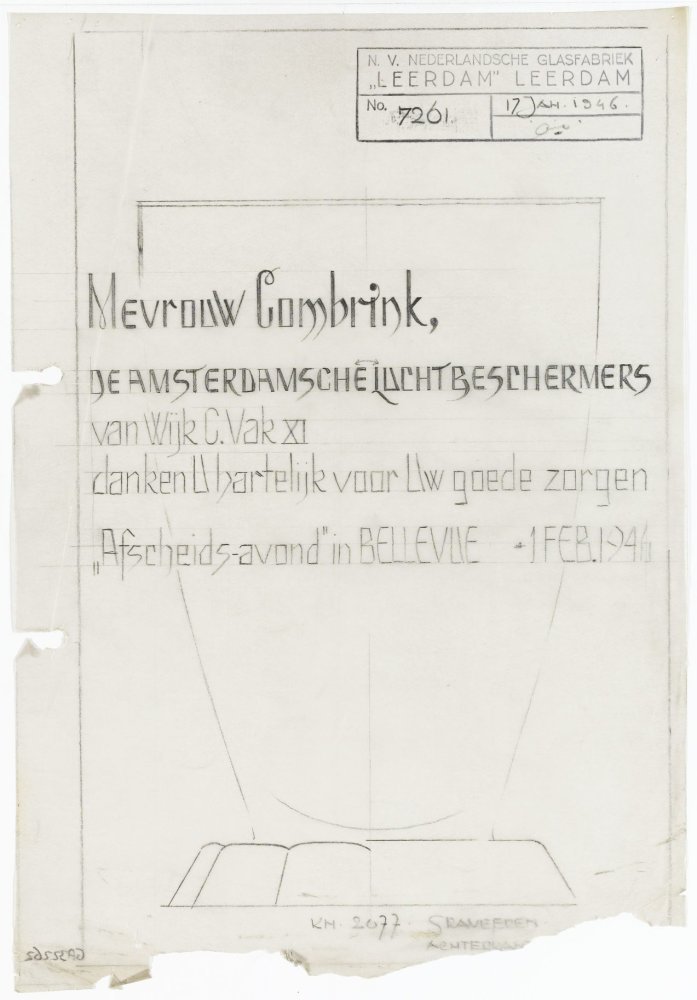 N. V. NEDERLANDSCHE GLASFABRIEK
„LEERDAM" LEERDAM
No. 7261. 17 JAN. 1946.
Mevrouw Combrink,
DE AMSTERDAMSCHE LUCHTBESCHERMERS
van Wijk C. Vak XI
danken U hartelijk voor Uw goede zorgen
„Afscheids-avond" in BELLEVUE - 1 FEB. 1946
KN. 2077. GRAVEEREN